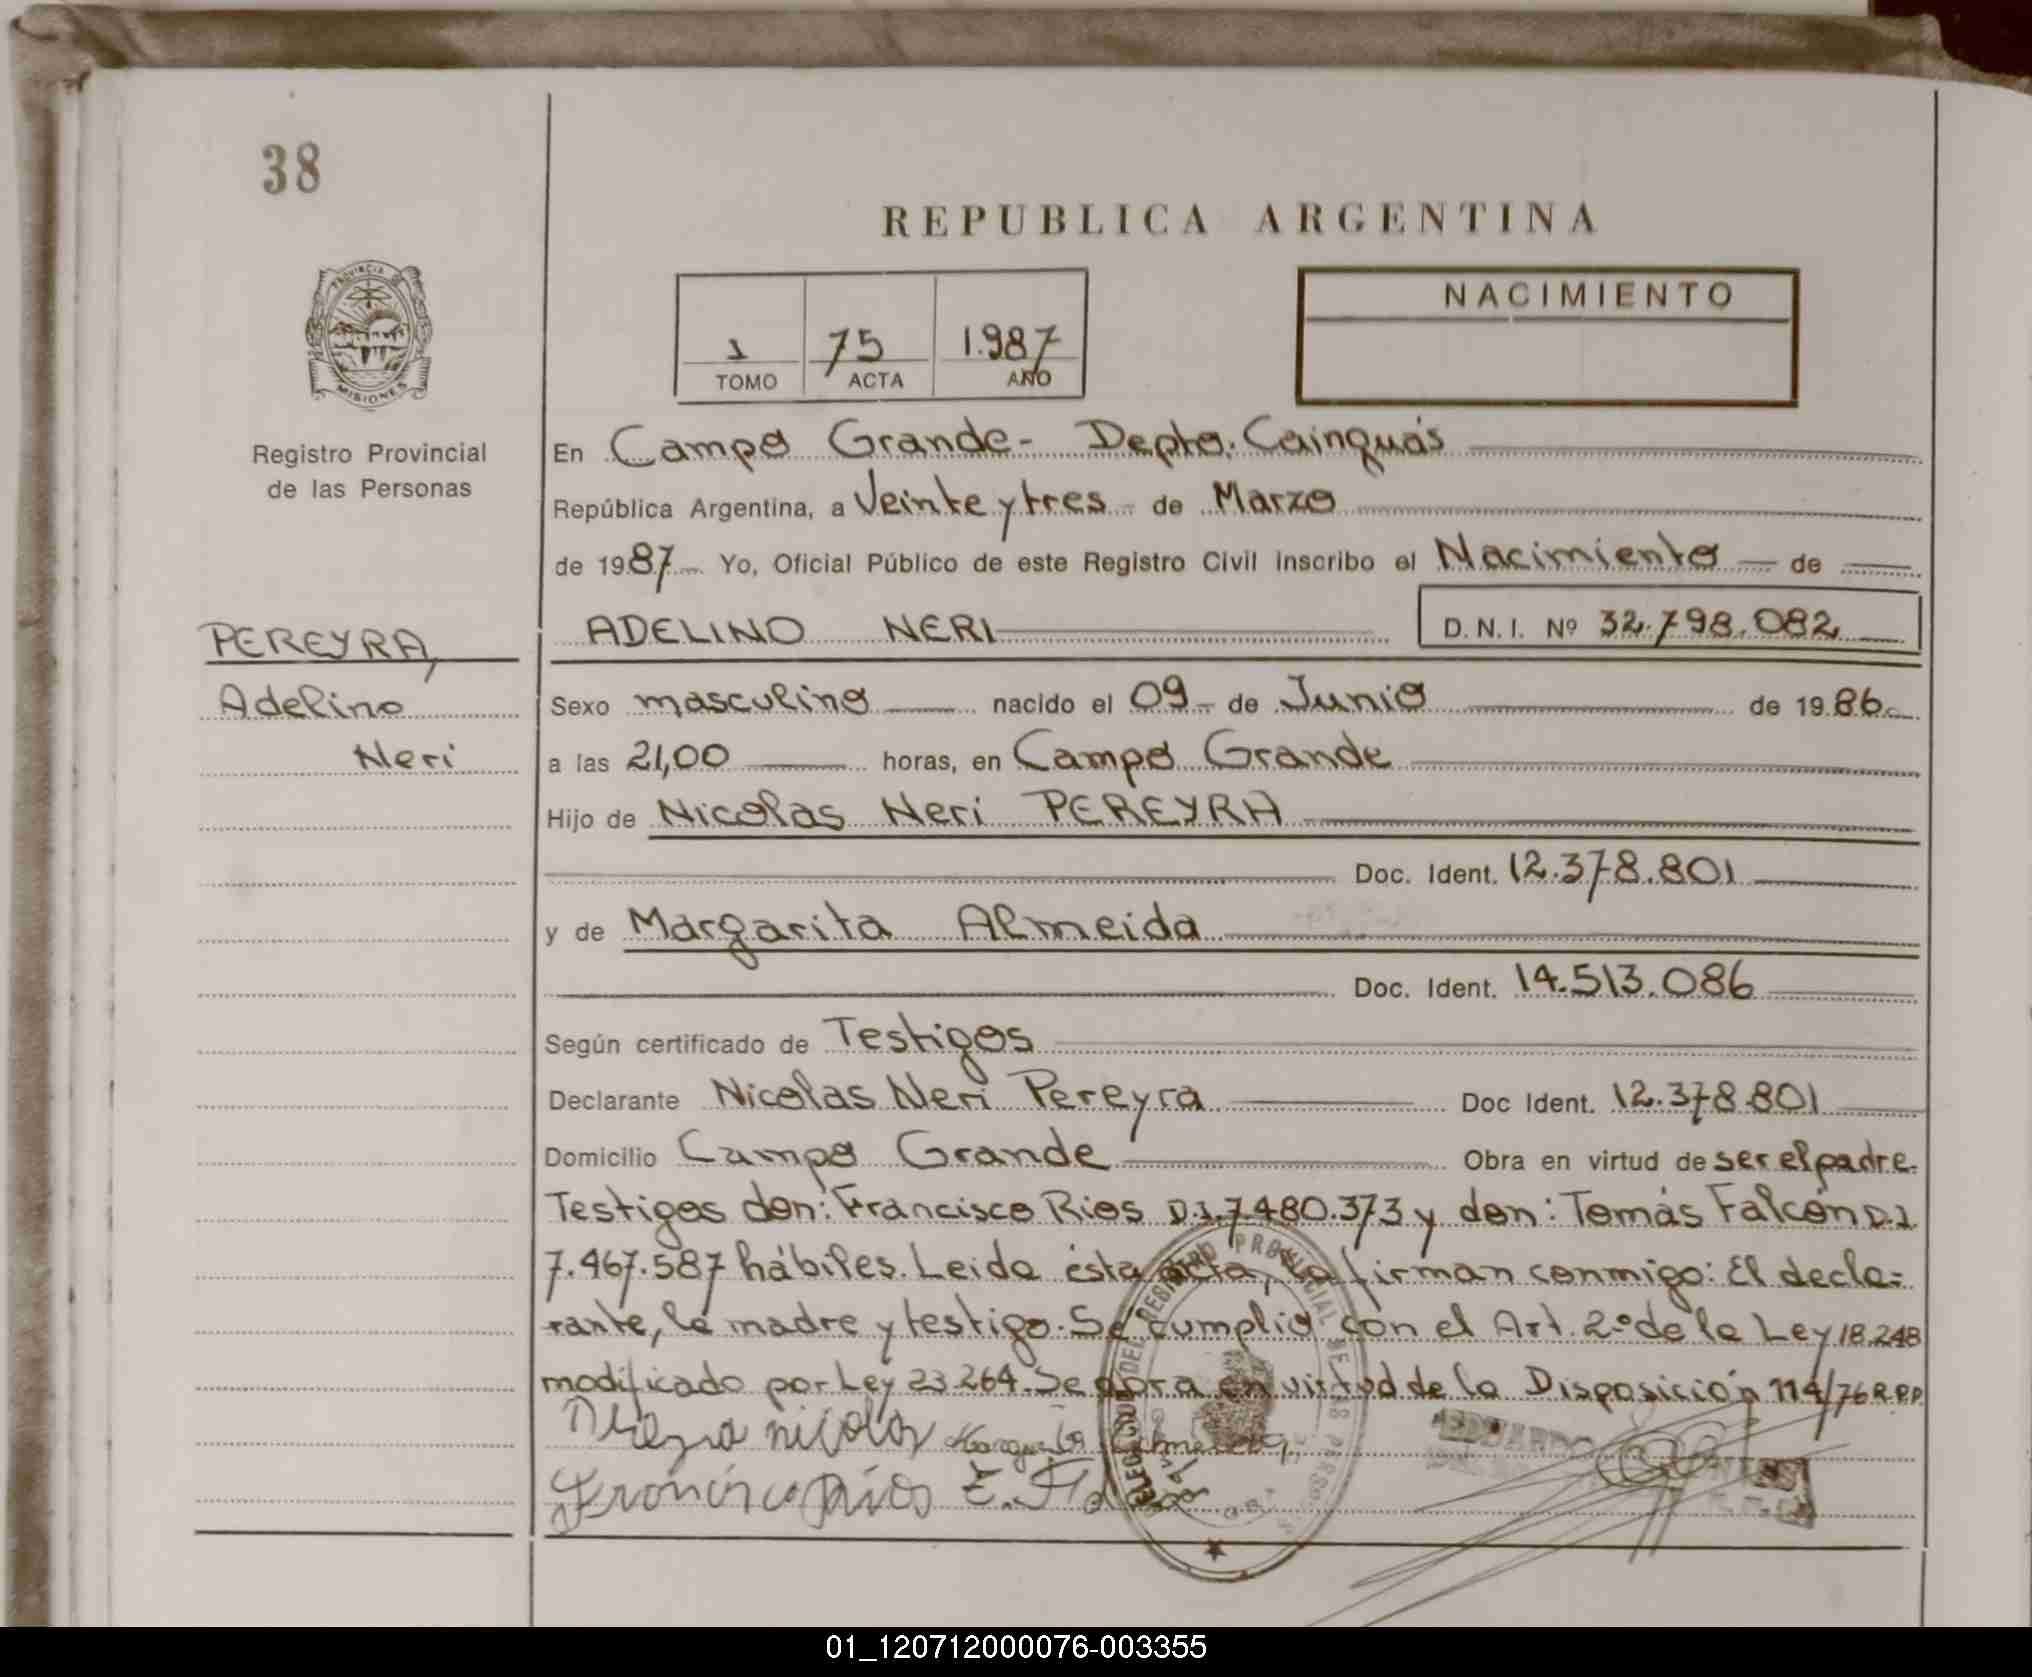 38
REPUBLICA ARGENTINA
NACIMIENTO
1 75 1.987
TOMO ACTA AÑO
PROVINCIA DE
MISIONES
Registro Provincial
de las Personas
En Campo Grande- Depto. Cainguás
República Argentina, a Veinte y tres - de Marzo
de 1987 Yo, Oficial Público de este Registro Civil inscribo el Nacimiento de
ADELINO NERI D.N.I. Nº 32.798.082
PEREYRA,
Adelino
Neri
Sexo masculino nacido el 09 - de Junio de 1986
a las 21,00 horas, en Campo Grande
Hijo de Nicolas Neri PEREYRA
Doc. Ident. 12.378.801
y de Margarita Almeida
Doc. Ident. 14.513.086
Según certificado de Testigos
Declarante Nicolas Neri Pereyra Doc Ident. 12.378.801
Domicilio Campo Grande Obra en virtud de ser el padre.
Testigos don: Francisco Rios D.I. 7.480.373 y don: Tomás Falcón D.I.
7.467.587 hábiles. Leida ésta acta, la firman conmigo: El decla-
rante, la madre y testigo. Se cumplió con el Art. 2º de la Ley 18.248
modificado por Ley 23.264. Se obra en virtud de la Disposición 114/76 R.P.P.
nicolas
Francisco Ríos
EDUARDO
01_120712000076-003355